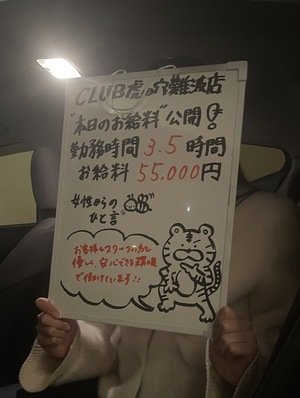 CLUB虎の穴難波店
"本日のお給料"公開!
勤務時間3.5時間
お給料55,000円
女性からの
ひと言
お客様もスタッフの方も
優しく、安心できる環境
で働けています!!